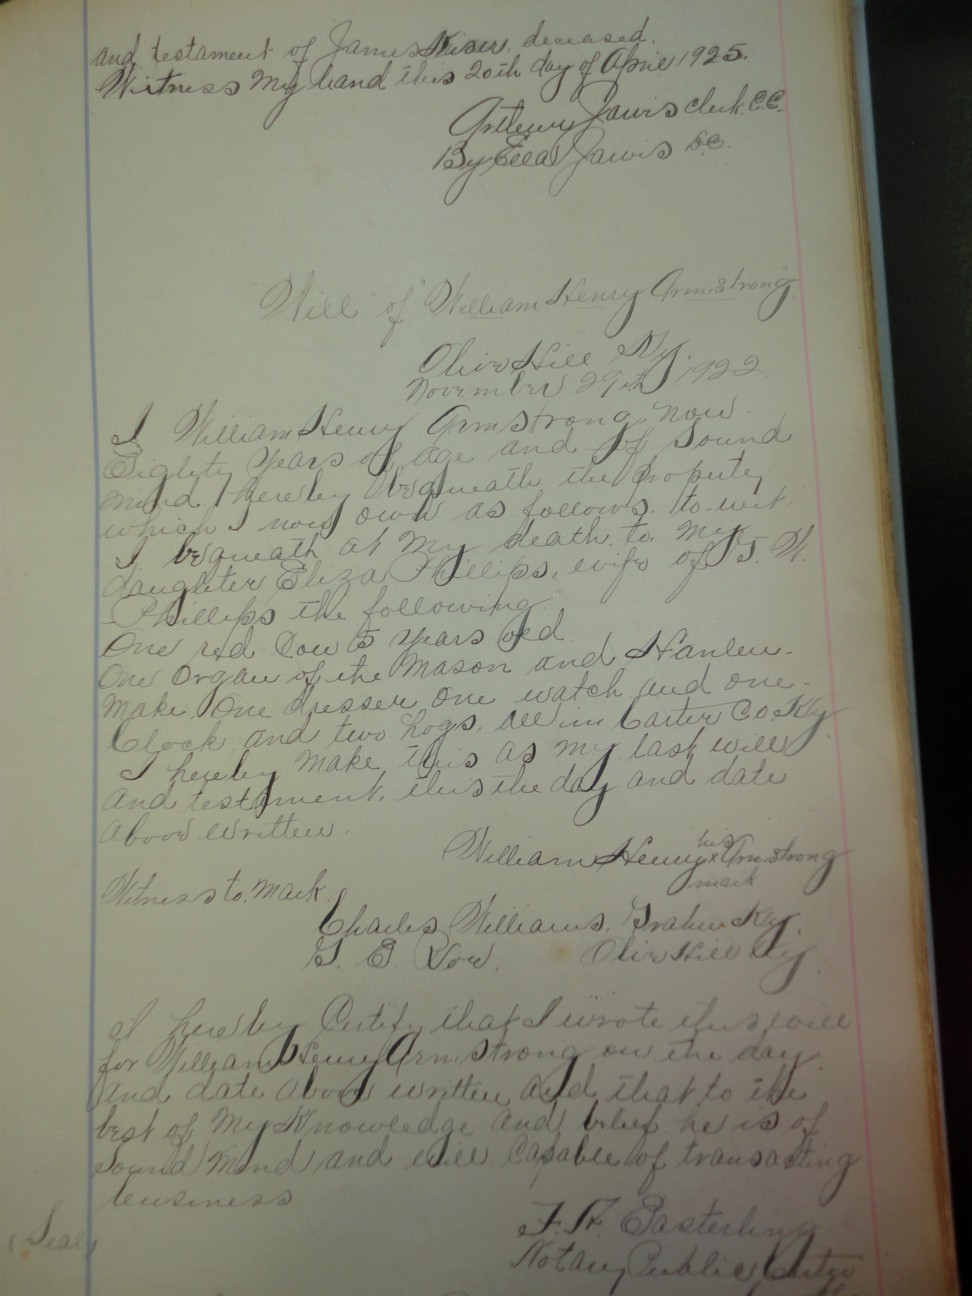 and testament of James Kiser, deceased.
Witness my hand this 20th day of April 1925.
Jarvis clerk C.C.
By Ella Jarvis D.C.
Will of William Henry Armstrong.
Olive Hill Ky.
November 29th 1922
I William Henry Armstrong now
Eighty years of age and of sound
mind hereby bequeath the property
which I now own as follows. to-wit.
I bequeath at my death to my
daughter Eliza Phillips, wife of
Phillips the following.
One red Cow 5 years old.
One Organ of the Mason and Hamlin-
Make, One dresser one watch and one-
Clock and two hogs, all in Carter Co. Ky.
I hereby make this as my last will
and testament, this the day and date
above written.
William Henry his x mark Armstrong
Witness to Mark.
Charles Williams, Grahn Ky.
Olive Hill Ky.
I hereby Certify that I wrote this will
for William Henry Armstrong on the day
and date above written and that to the
best of my Knowledge and belief he is of
Sound mind and well capable of transacting
business
(Seal)
Easterling
Notary Public Carter